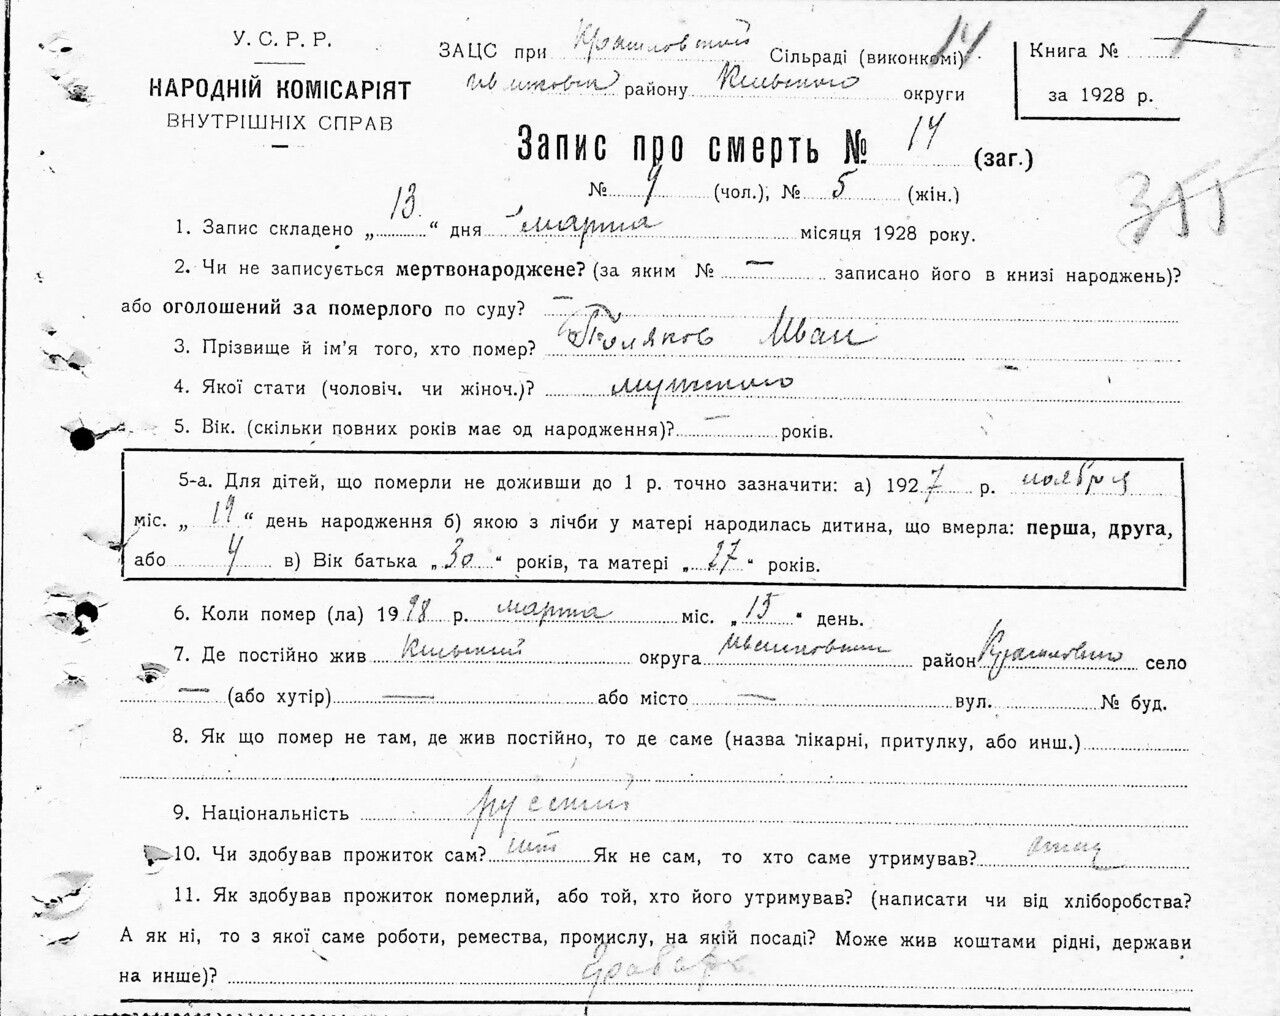 У. С. Р. Р.
НАРОДНІЙ КОМІСАРІЯТ
ВНУТРІШНІХ СПРАВ
ЗАЦС при Сільраді (виконкомі) 14
району Киевского округи
Книга № 1
за 1928 р.
Запис про смерть № 14 (заг.)
№ (чол.), № 5 (жін.)
355
1. Запис складено „ 13 “ дня марта місяця 1928 року.
2. Чи не записується мертвонароджене? (за яким № — записано його в книзі народжень)?
або оголошений за померлого по суду? —
3. Прізвище й ім'я того, хто помер? Поляков Иван
4. Якої стати (чоловіч. чи жіноч.)? мужского
5. Вік. (скільки повних років має од народження)? — років.
5-а. Для дітей, що померли не доживши до 1 р. точно зазначити: а) 1927 р. ноября
міс. „ 19 “ день народження б) якою з лічби у матері народилась дитина, що вмерла: перша, друга,
або в) Вік батька „ 30 “ років, та матері „ 27 “ років.
6. Коли помер (ла) 1928 р. марта міс. „ 13 “ день.
7. Де постійно жив округа район село
— (або хутір) — або місто — вул. № буд.
8. Як що помер не там, де жив постійно, то де саме (назва лікарні, притулку, або инш.)
9. Національність русский
10. Чи здобував прожиток сам? нет Як не сам, то хто саме утримував? отец
11. Як здобував прожиток померлий, або той, хто його утримував? (написати чи від хліборобства?
А як ні, то з якої саме роботи, ремества, промислу, на якій посаді? Може жив коштами рідні, держави
на инше)?